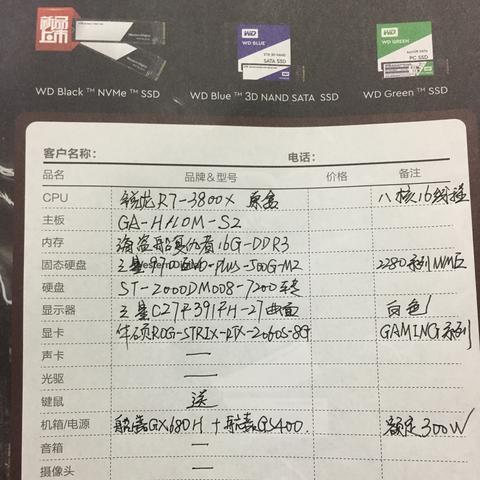 新品上市
WD Black™ NVMe™ SSD
WD BLUE
SATA SSD
WD Blue™ 3D NAND SATA SSD
WD GREEN
PC SSD
WD Green™ SSD
客户名称： 电话：
品名 品牌&型号 价格 备注
CPU 锐龙R7-3800X 原盒 八核16线程
主板 GA-H110M-S2
内存 海盗船复仇者16G-DDR3
固态硬盘 三星970EVO-PLUS-500G-M2 2280系列NVME
硬盘 ST-2000DM008-7200转
显示器 三星C27F391FH-27曲面 白色
显卡 华硕ROG-STRIX-RTX-2060S-8G GAMING系列
声卡 一
光驱 一
键鼠 送
机箱/电源 航嘉GX680H+航嘉GS400. 额定300W
音箱 一
摄像头 一